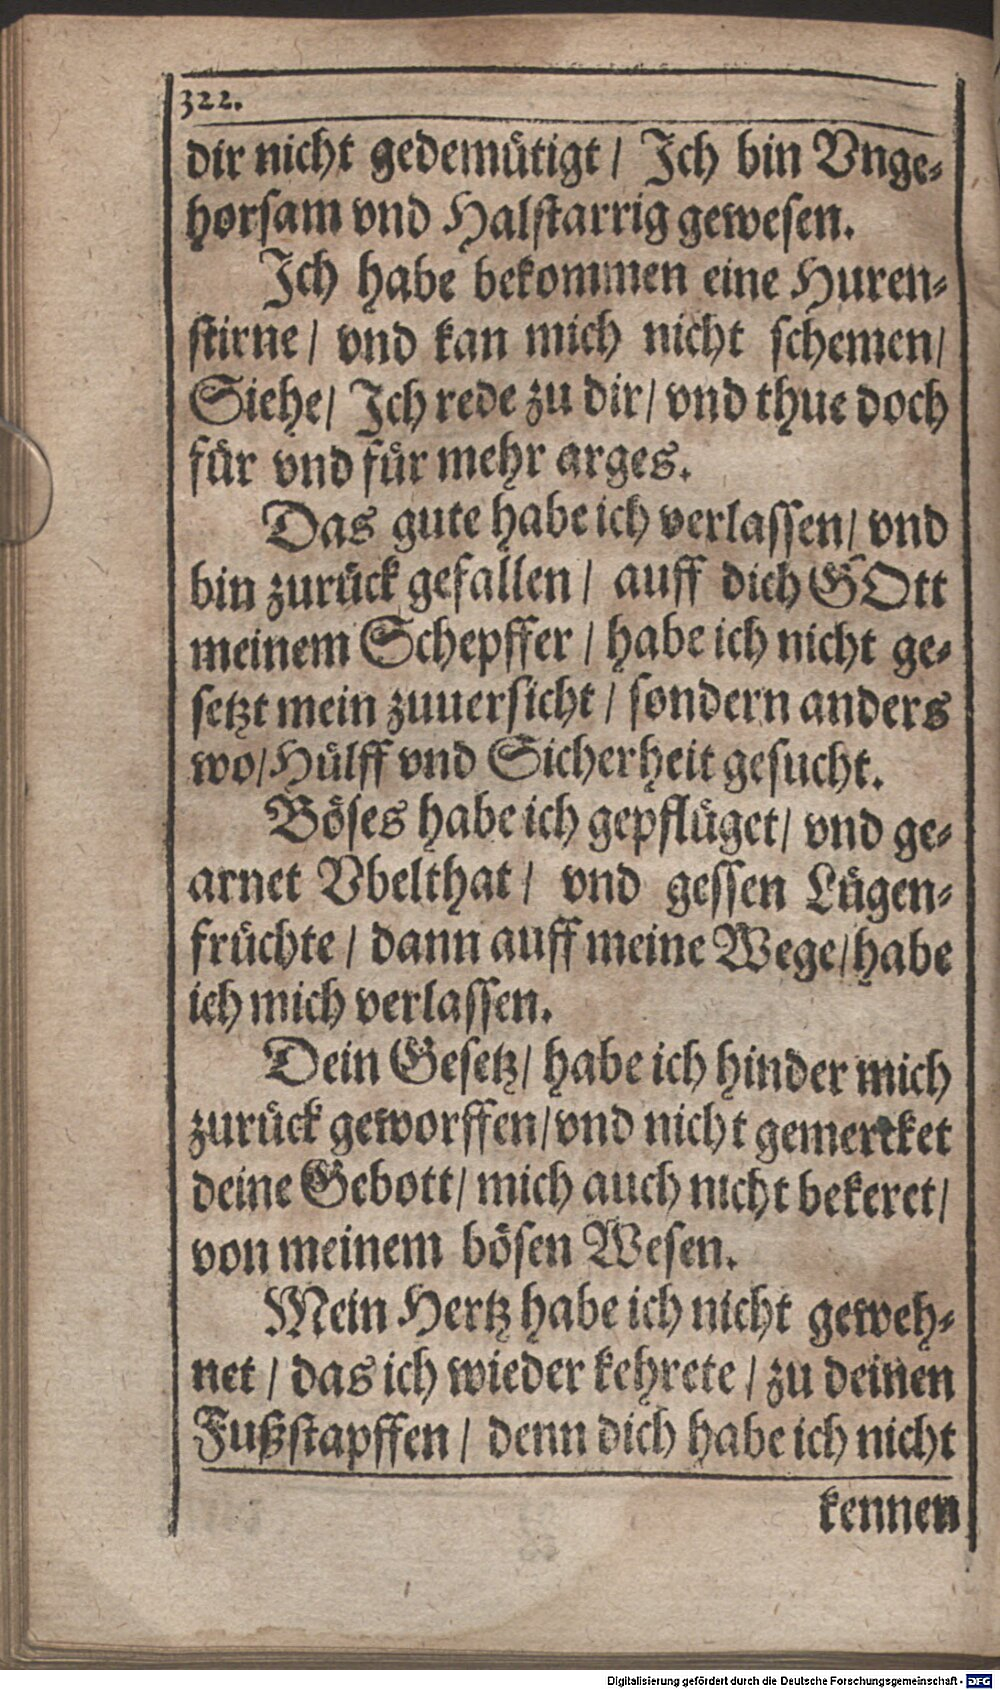 322.
dir nicht gedemütigt / Ich bin Vnge-
horsam vnd Halstarrig gewesen.
Ich habe bekommen eine Huren-
stirne / vnd kan mich nicht schemen /
Siehe / Ich rede zu dir / vnd thue doch
für vnd für mehr arges.
Das gute habe ich verlassen / vnd
bin zurück gefallen / auff dich GOtt
meinem Schepffer / habe ich nicht ge-
setzt mein zuuersicht / sondern anders
wo / Hülff vnd Sicherheit gesucht.
Böses habe ich gepflüget / vnd ge-
arnet Vbelthat / vnd gessen Lügen-
früchte / dann auff meine Wege / habe
ich mich verlassen.
Dein Gesetz / habe ich hinder mich
zurück geworffen / vnd nicht gemercket
deine Gebott / mich auch nicht bekeret /
von meinem bösen Wesen.
Mein Hertz habe ich nicht geweh-
net / das ich wieder kehrete / zu deinen
Fußstapffen / denn dich habe ich nicht
kennen
Digitalisierung gefördert durch die Deutsche Forschungsgemeinschaft - DFG